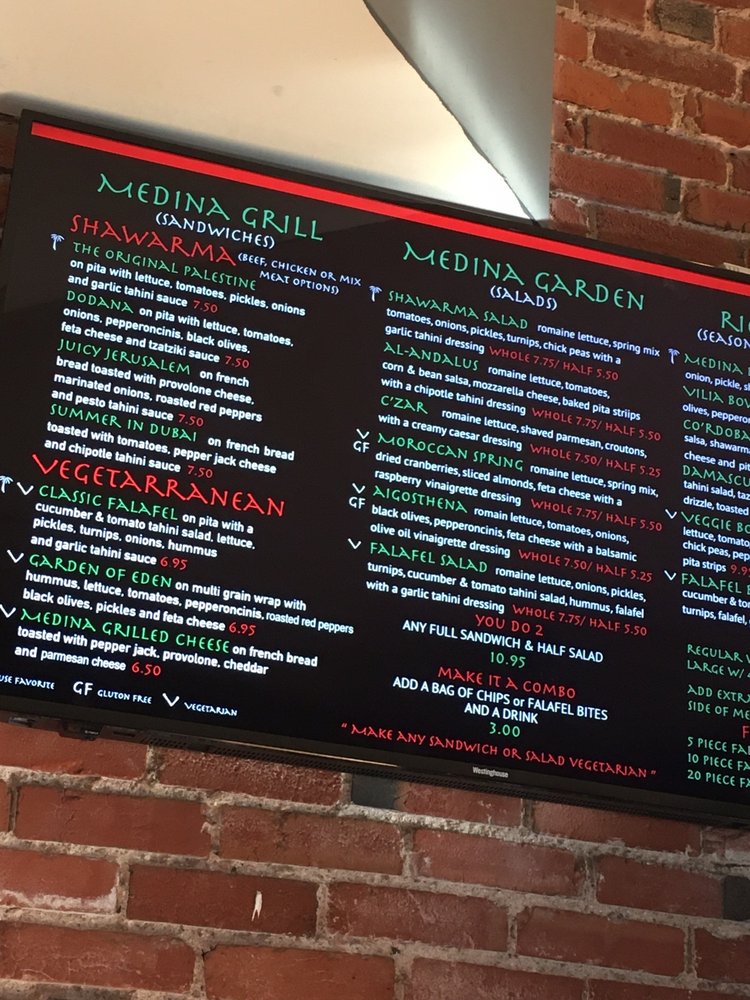 MEDINA GRILL
(SANDWICHES)
SHAWARMA (BEEF, CHICKEN OR MIX
MEAT OPTIONS)
THE ORIGINAL PALESTINE
on pita with lettuce, tomatoes, pickles, onions
and garlic tahini sauce 7.50
DODANA on pita with lettuce, tomatoes,
onions, pepperoncinis, black olives,
feta cheese and tzatziki sauce 7.50
JUICY JERUSALEM on french
bread toasted with provolone cheese,
marinated onions, roasted red peppers
and pesto tahini sauce 7.50
SUMMER IN DUBAI on french bread
toasted with tomatoes, pepper jack cheese
and chipotle tahini sauce 7.50
VEGETARRANEAN
V CLASSIC FALAFEL on pita with a
cucumber & tomato tahini salad, lettuce,
pickles, turnips, onions, hummus
and garlic tahini sauce 6.95
V GARDEN OF EDEN on multi grain wrap with
hummus, lettuce, tomatoes, pepperoncinis, roasted red peppers
black olives, pickles and feta cheese 6.95
V MEDINA GRILLED CHEESE on french bread
toasted with pepper jack, provolone, cheddar
and parmesan cheese 6.50
USE FAVORITE GF GLUTON FREE V VEGETARIAN
MEDINA GARDEN
(SALADS)
SHAWARMA SALAD romaine lettuce, spring mix
tomatoes, onions, pickles, turnips, chick peas with a
garlic tahini dressing WHOLE 7.75/ HALF 5.50
AL-ANDALUS romaine lettuce, tomatoes,
corn & bean salsa, mozzarella cheese, baked pita striips
with a chipotle tahini dressing WHOLE 7.75/ HALF 5.50
C'ZAR romaine lettuce, shaved parmesan, croutons,
with a creamy caesar dressing WHOLE 7.50/ HALF 5.25
V GF MOROCCAN SPRING romaine lettuce, spring mix,
dried cranberries, sliced almonds, feta cheese with a
raspberry vinaigrette dressing WHOLE 7.75/ HALF 5.50
V GF AIGOSTHENA romain lettuce, tomatoes, onions,
black olives, pepperoncinis, feta cheese with a balsamic
olive oil vinaigrette dressing WHOLE 7.50/ HALF 5.25
V FALAFEL SALAD romaine lettuce, onions, pickles,
turnips, cucumber & tomato tahini salad, hummus, falafel
with a garlic tahini dressing WHOLE 7.75/ HALF 5.50
YOU DO 2
ANY FULL SANDWICH & HALF SALAD
10.95
MAKE IT A COMBO
ADD A BAG OF CHIPS or FALAFEL BITES
AND A DRINK
3.00
" MAKE ANY SANDWICH OR SALAD VEGETARIAN "
Westinghouse
RI
(SEASON
MEDINA
onion, pickle, s
VILIA BOW
olives, peppero
CO'RDOBA
salsa, shawarm
cheese and pi
DAMASCU
tahini salad, taz
drizzle, toasted
V VEGGIE BO
lettuce, tomato
chick peas, pep
pita strips 9.9
V FALAFEL B
cucumber & to
turnips, falafel,
REGULAR
LARGE W/
ADD EXTRA
SIDE OF ME
F
5 PIECE FA
10 PIECE FA
20 PIECE FA